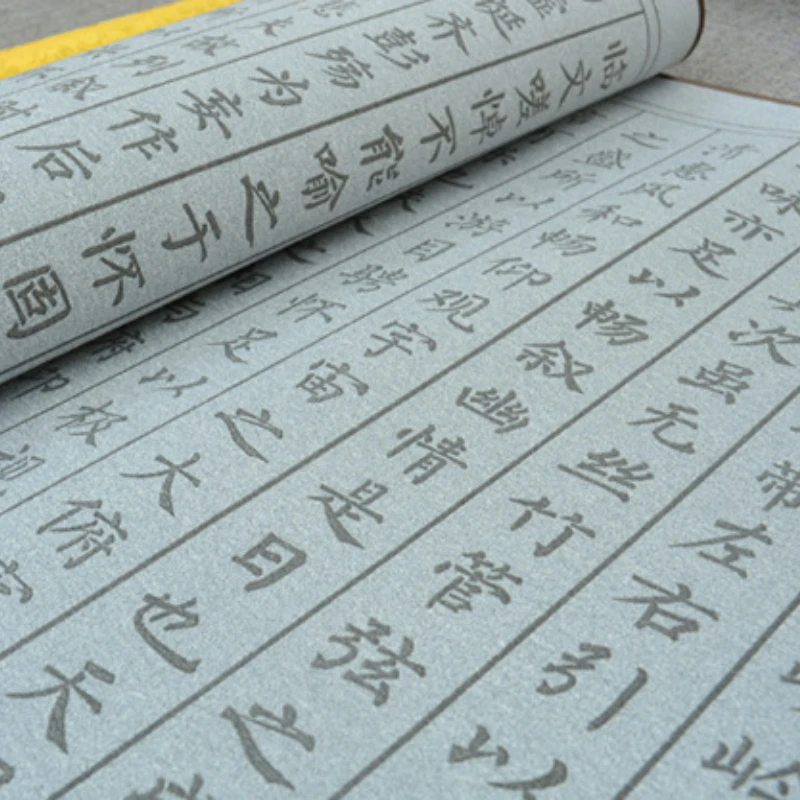 岭
带左右引以
次虽无丝竹管弦之
咏亦足以畅叙幽情是日也天
清惠风和畅仰观宇宙之大俯
之盛所以游目骋怀足以极视
临文嗟悼不能喻之于怀固
虚诞齐彭殇为妄作后
悲夫故列叙时